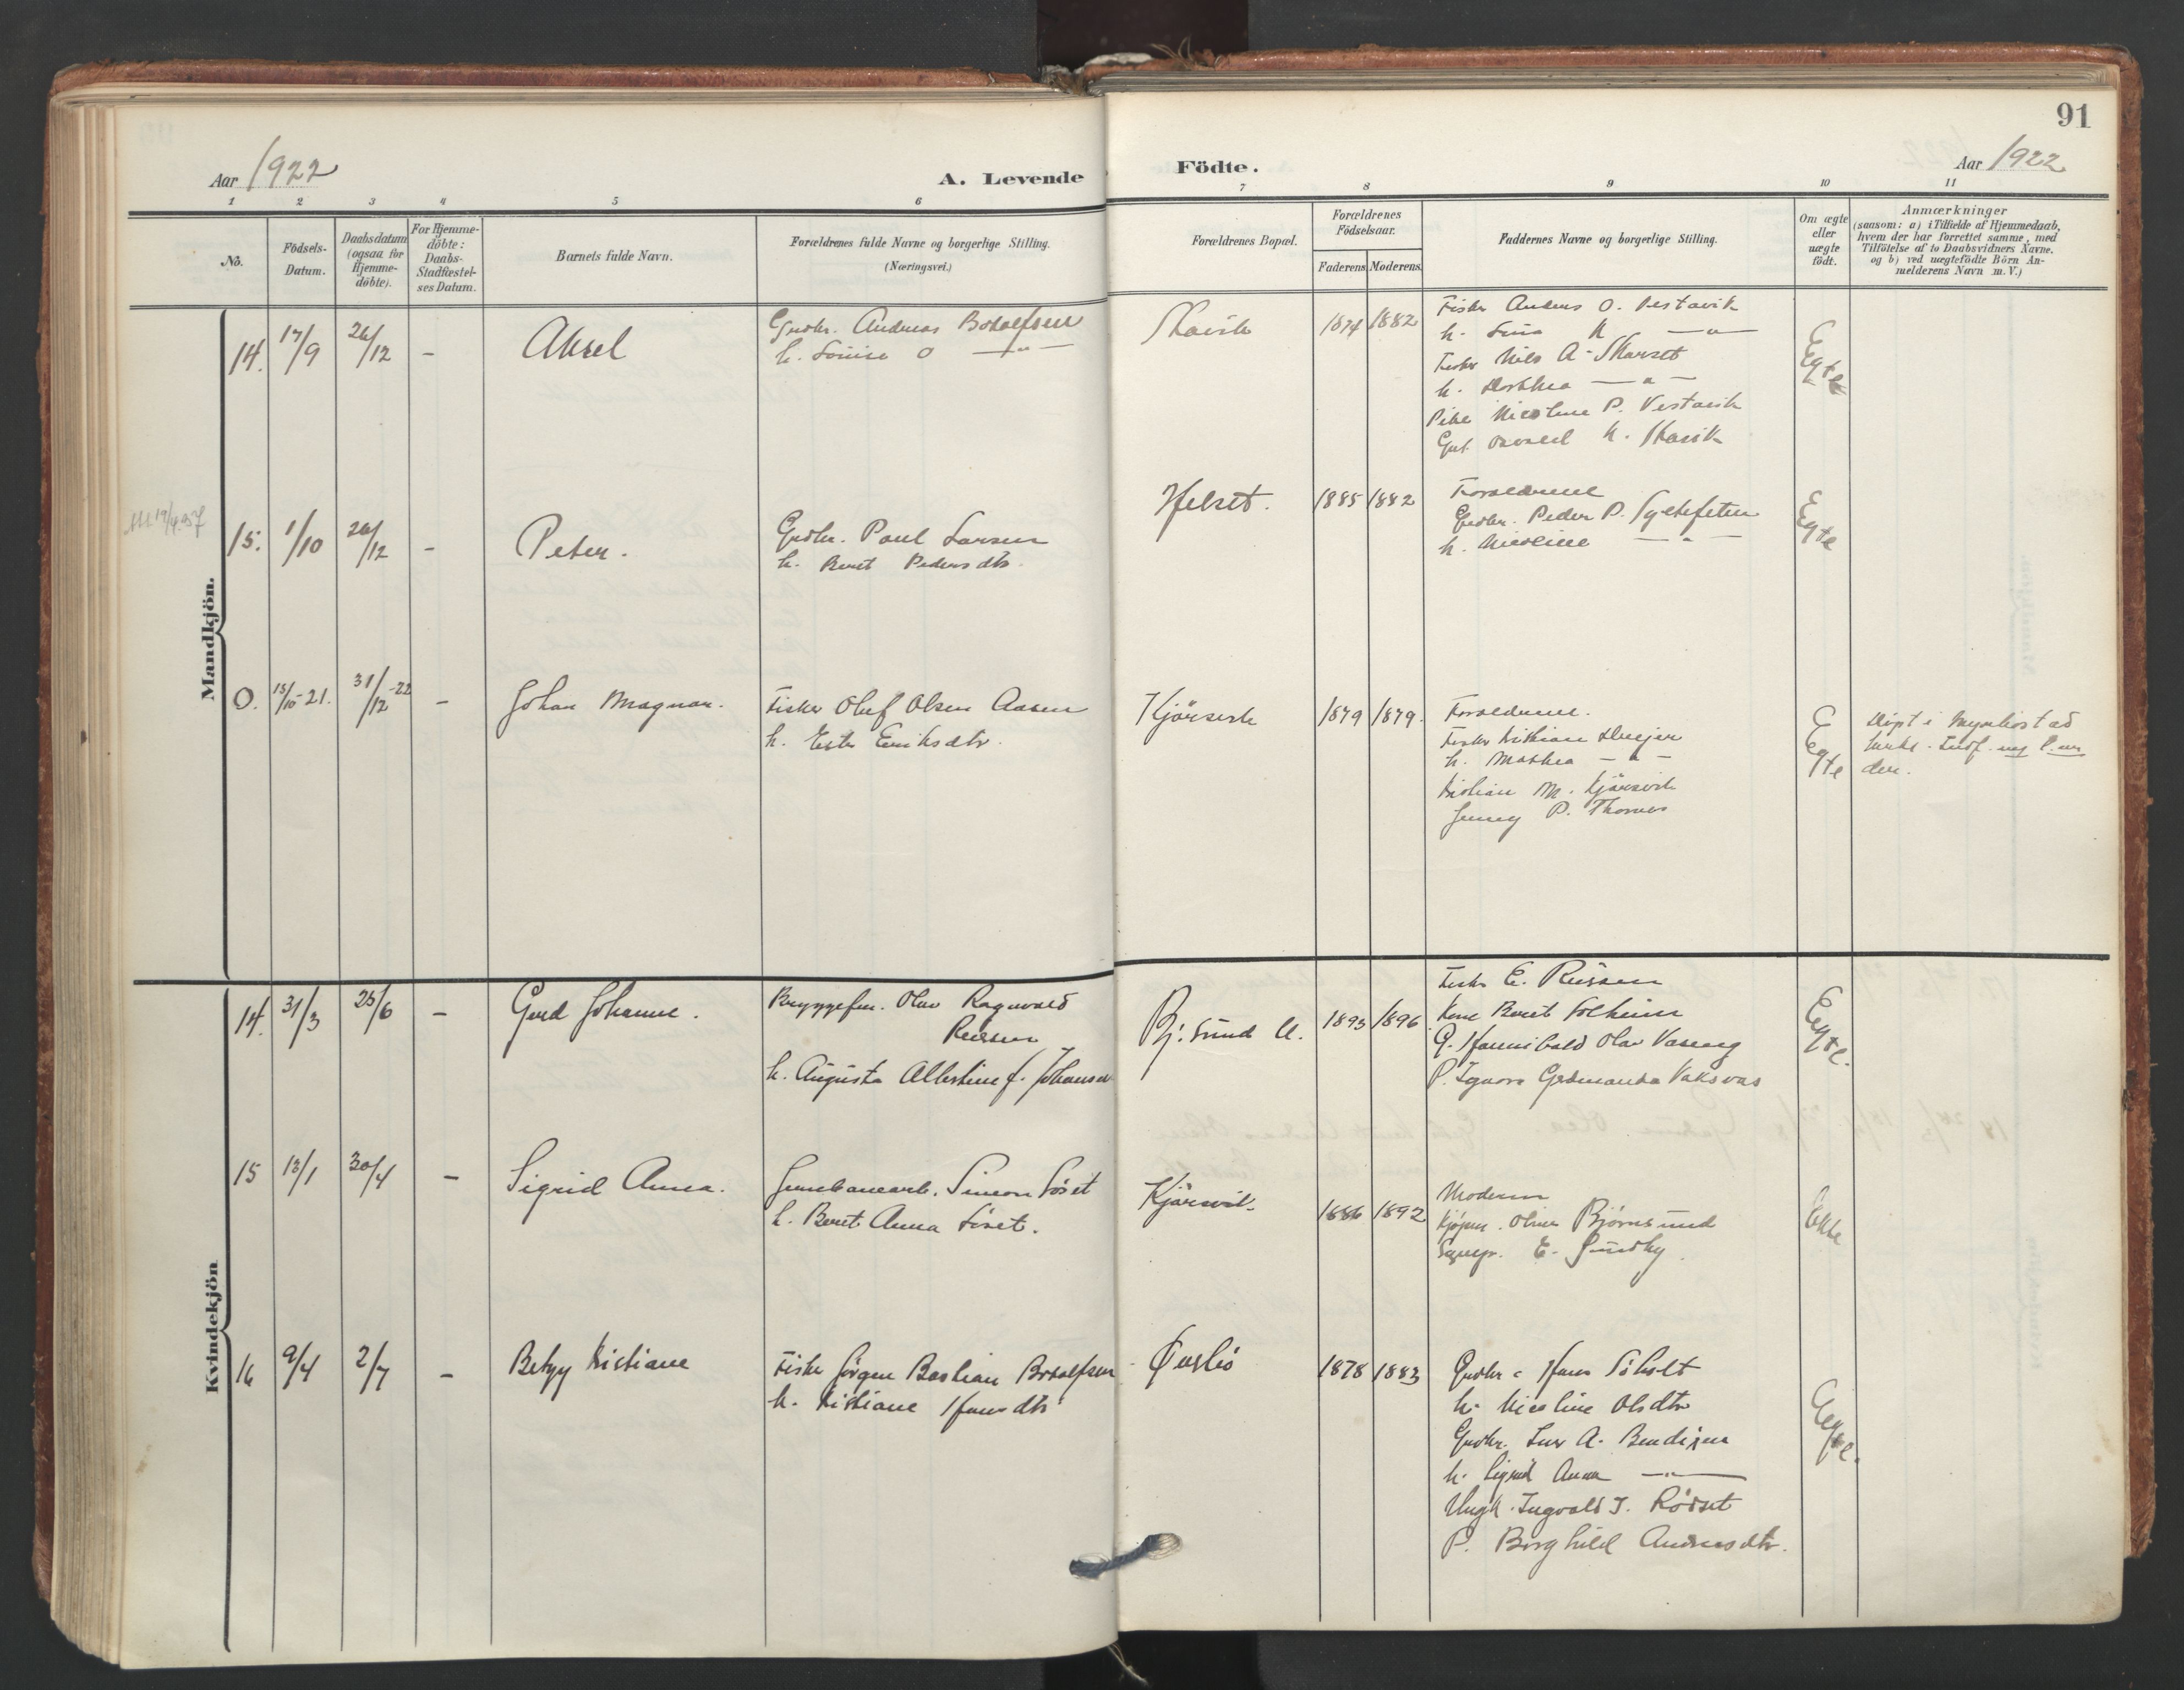 91
Aar 1922
A. Levende Födte.
Aar 1922
1 2 3 4 5 6 7 8 9 10 11
Nö.
Födsels-
Datum.
Daabsdatum
(ogsaa for
Hjemme-
döbte).
For Hjemme-
döbte:
Daabs-
Stadfæstel-
ses Datum.
Barnets fulde Navn.
Forældrenes fulde Navne og borgerlige Stilling.
(Næringsvei.)
Forældrenes Bopæl.
Forældrenes
Födselsaar.
Faderens.
Moderens.
Faddernes Navne og borgerlige Stilling.
Om ægte
eller
uægte
födt.
Anmærkninger
(saasom: a) i Tilfælde af Hjemmedaab,
hvem der har forrettet samme, med
Tilföielse af to Daabsvidners Navne,
og b) ved uægtefödte Börn An-
melderens Navn m. V.)
Mandkjön.
14. 17/9 26/12 - Aksel
Gaardbr. Andreas Bottolfsen
h. Louise O —"—
1874 1882
Fisker Anders O. Vestavik
h. K —"—
Fisker Nils A. Skarset
h. Dorthea —"—
Pike Nicoline P. Vestavik
Gut K. Skavik
Egte
15. 1/10 26/12 - Peter.
Grdbr. Paul Larsen
h. Beret Pedersdtr.
Helset. 1885 1882
Forældrene
Grdbr. Peder P.
h. Nicoline —"—
Egte
0. 15/10-21. 31/12-22 - Johan Magnar.
Fisker Oluf Olsen Aasen
h. Ester Eriksdtr.
Kjörsvik 1879 1879.
Forældrene.
Fisker Kristian
h. Mathea —"—
Kristian M. Kjörsvik
Jenny P. Thornes
Egte
Döpt i
kirke. Indf.
der.
Kvindekjön
14. 31/3 25/6 - Gerd Johanne.
Bryggefm. Olav Ragnvald
Reiersen
h. Augusta Albertine f. Johansen
Bj:sund U. 1893 1896
Fisker E.
Kone Beret Solheim
G. Hannibald Olav Vaseng
P. Vaksvas
Egte.
15 13/1 30/4 - Sigrid Anna.
Jernbanearb. Simon Söset
h. Beret Anna Söset.
Kjörsvik. 1886 1892
Moderen
Kjöpm. Oliver Björnsund
E. Sundby.
Ekte
16 9/4 2/7 - Betzy Kristiane
Fisker Jörgen Bastian Bottolfsen
h. Kristiane Hansdtr
1878 1883
Grdbr. Hans Söholt
h. Nicoline Olsdtr
Grdbr. Lars A. Bendixen
h. Sigrid Anna —"—
Ungk. Ingvald J. Rödset
P. Borghild Andreasdtr.
Egte.